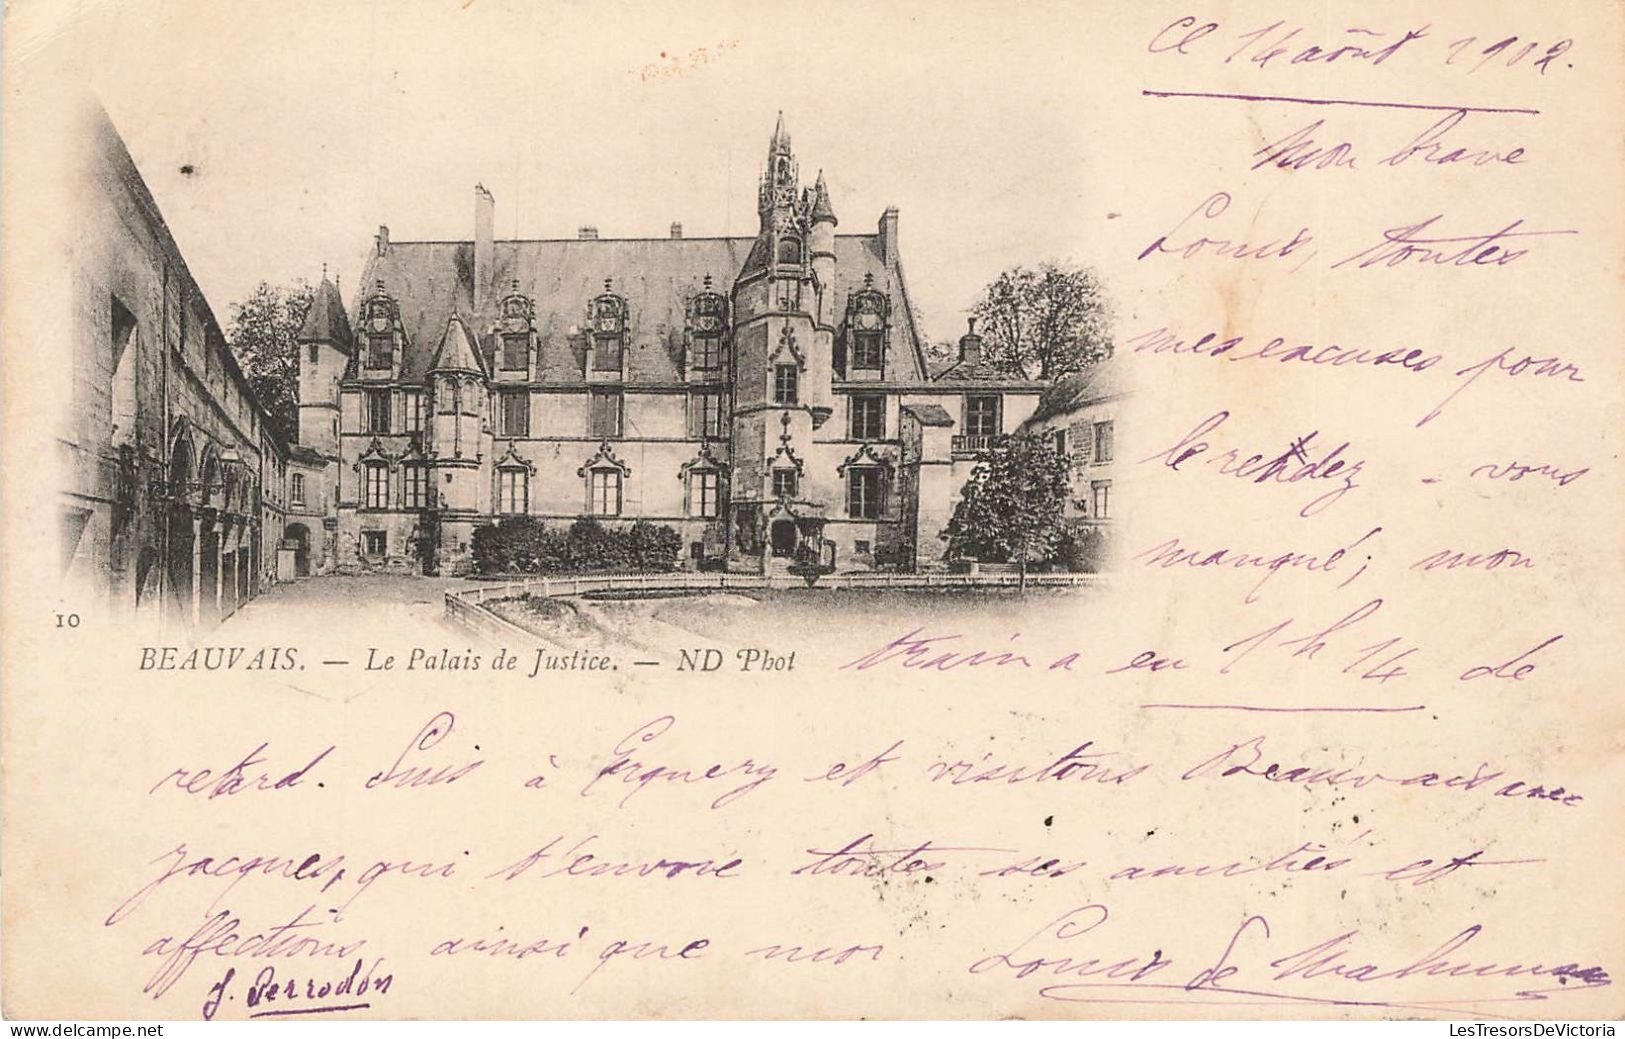 Ce 14 août 1902.
Mon brave
Louis, toutes
mes excuses pour
le rendez-vous
manqué; mon
10
BEAUVAIS. — Le Palais de Justice. — ND Phot
train a eu 1h 14 de
retard. Suis à Erquery et visitons Beauvais avec
Jacques, qui t'envoie toutes ses amitiés et
affections, ainsi que moi. Louis de
J. Perrodon
LesTresorsDeVictoria